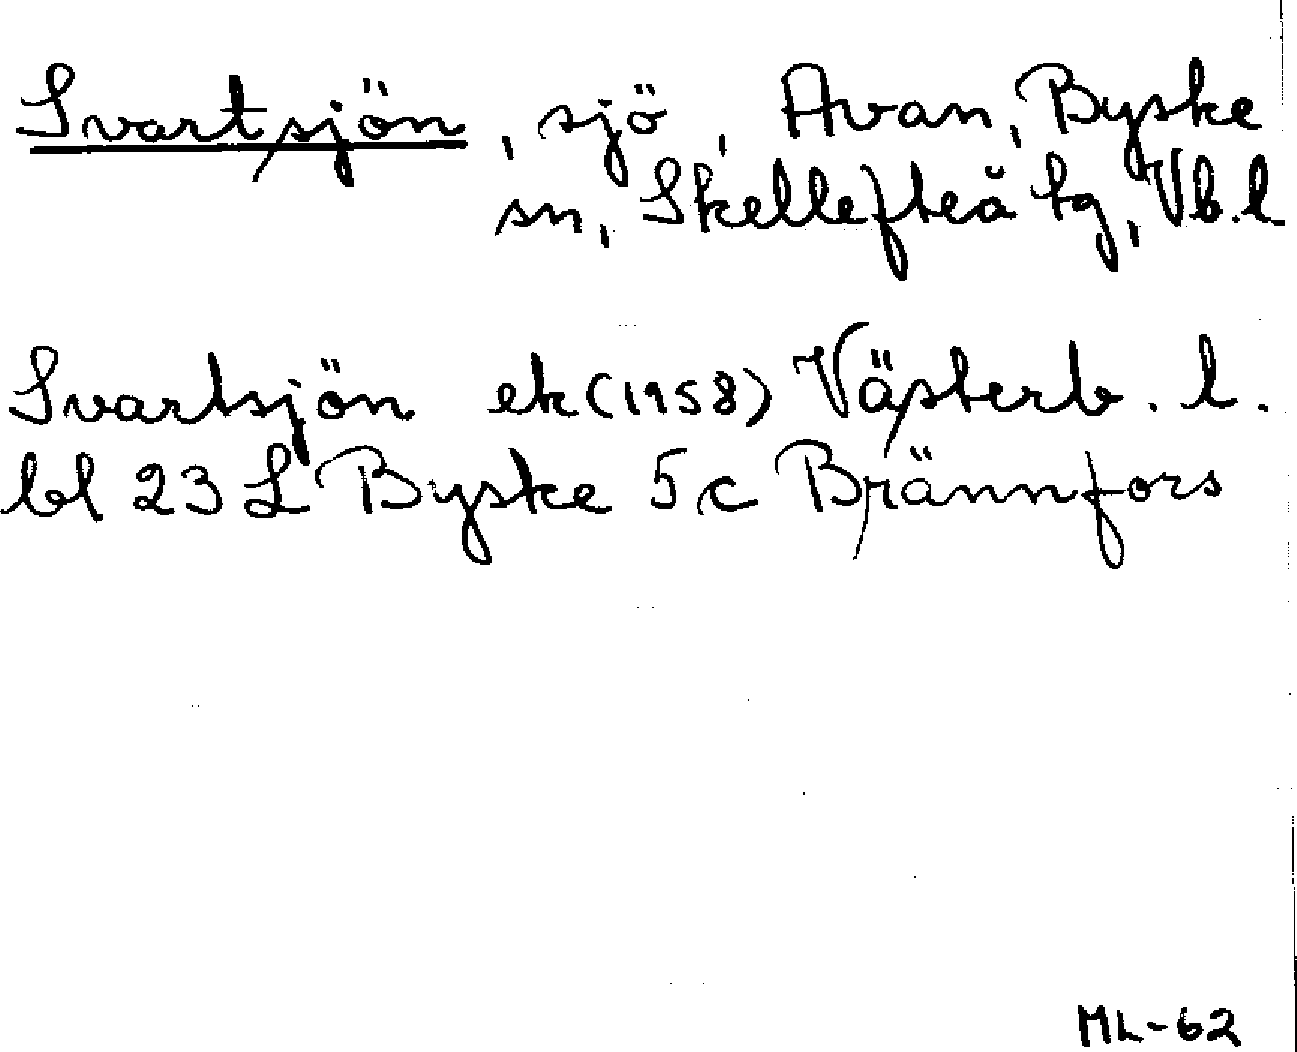 Svartsjön, sjö, Avan, Byske
sn, Skellefteå tg, Vb. l
Svartsjön ek (1958) Västerb. l.
bl 23 L Byske 5c Brännfors
ML-62